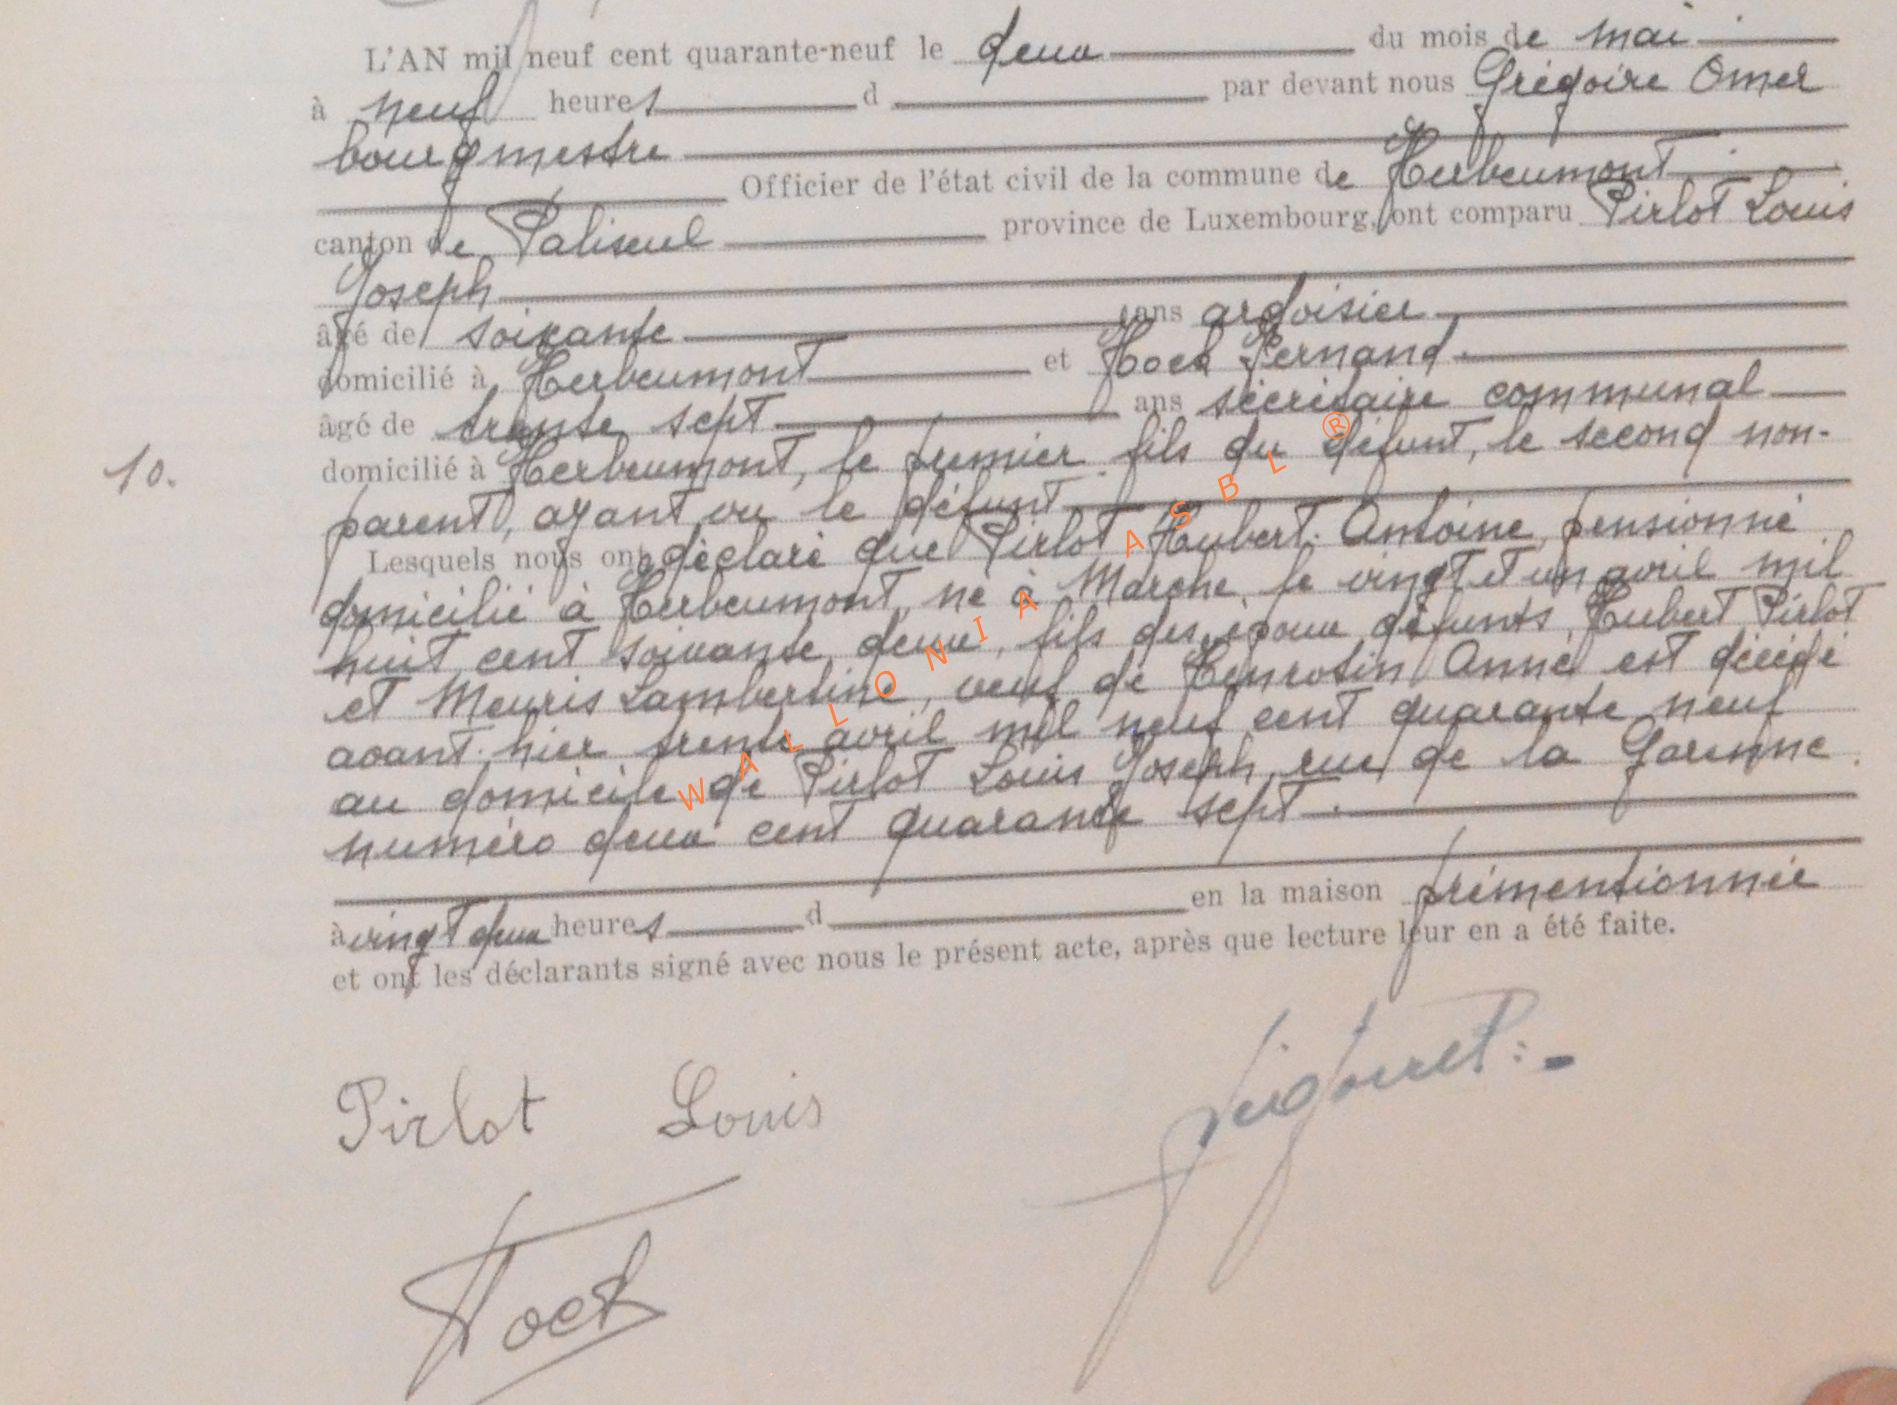 L'AN mil neuf cent quarante-neuf le deux du mois de mai
à neuf heures d par devant nous Grégoire Omer
bourgmestre
Officier de l'état civil de la commune de Herbeumont
canton de Paliseul province de Luxembourg, ont comparu Pirlot Louis
Joseph
âgé de soixante ans ardoisier
domicilié à Herbeumont et Hock Fernand
âgé de trente sept ans secrétaire communal
10. domicilié à Herbeumont, le premier fils du défunt, le second non-
parent, ayant vu le défunt
Lesquels nous ont déclaré que Pirlot Hubert Antoine, pensionné
domicilié à Herbeumont, né à Marche, le vingt et un avril mil
huit cent soixante deux, fils des époux défunts Hubert Pirlot
et Meuris Lambertine, veuf de Henrotin Anne, est décédé
avant hier trente avril mil neuf cent quarante neuf
au domicile de Pirlot Louis Joseph, rue de la Garenne
numéro deux cent quarante sept.
à vingt deux heures d en la maison prémentionnée
et ont les déclarants signé avec nous le présent acte, après que lecture leur en a été faite.
Pirlot Louis
Hock
WALLONIA ASBL ®